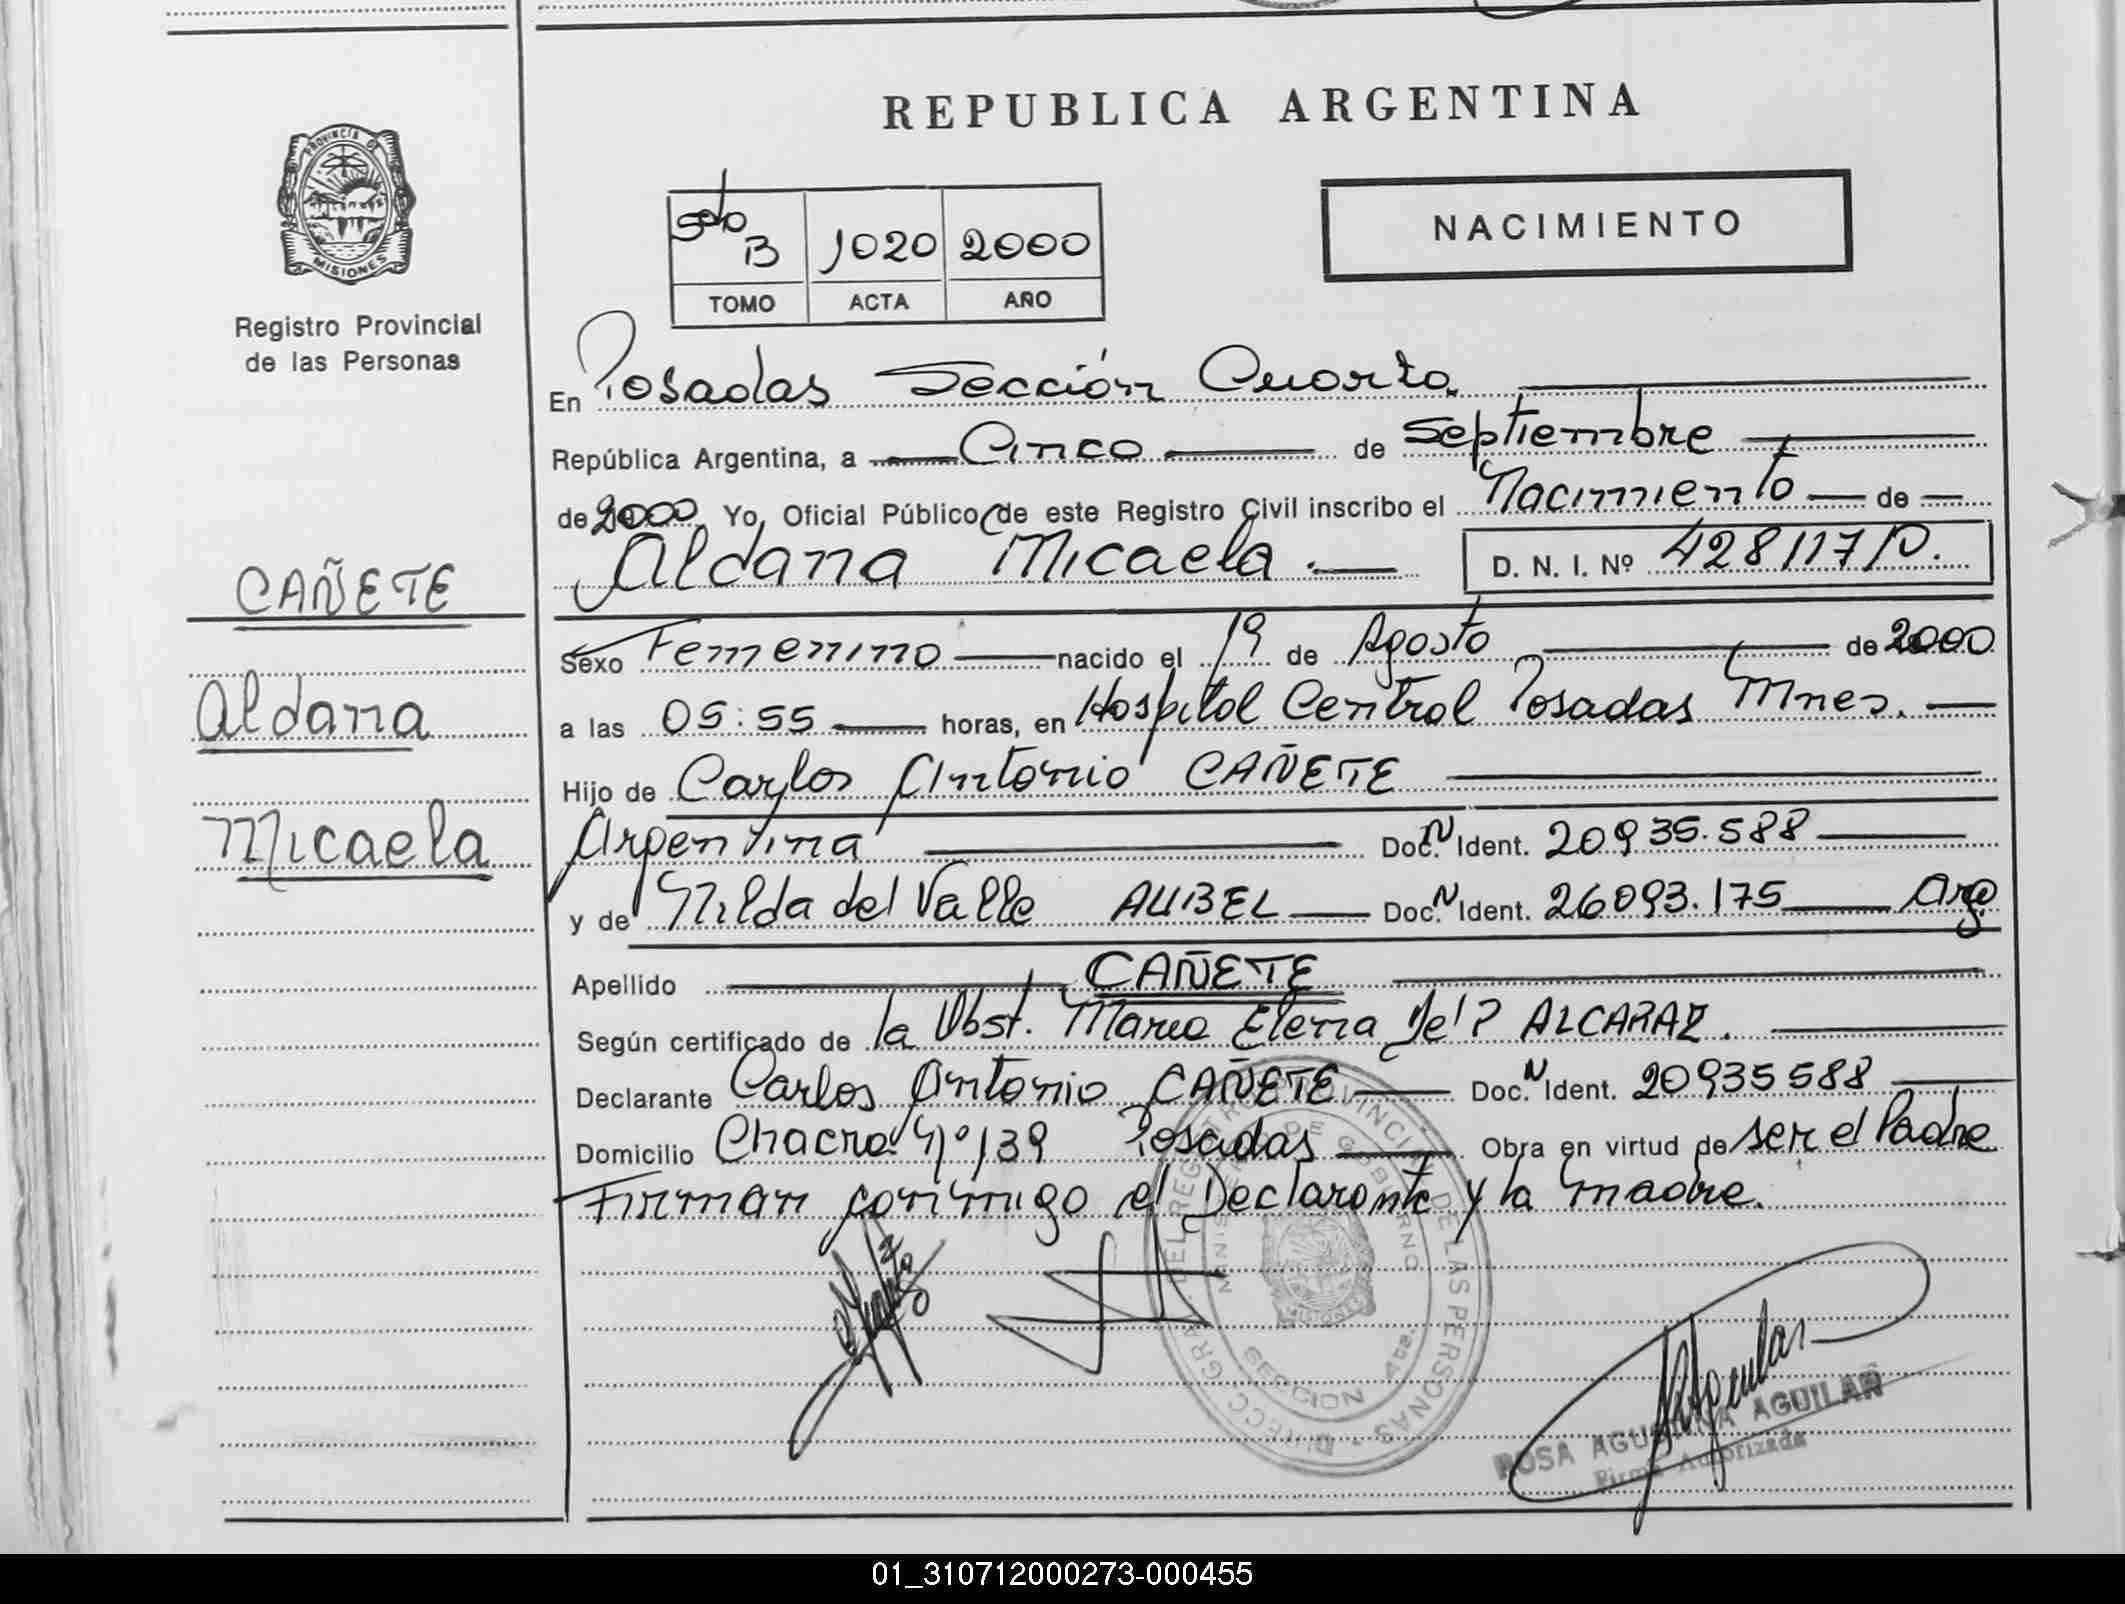 REPUBLICA ARGENTINA
PROVINCIA DE
MISIONES
Registro Provincial
de las Personas
B 1020 2000
TOMO ACTA AÑO
NACIMIENTO
En Posadas Sección Cuarta
República Argentina, a Cinco de Septiembre
de 2000 Yo, Oficial Público de este Registro Civil inscribo el Nacimiento de
Aldana Micaela. D. N. I. Nº
CAÑETE
Aldana
Micaela
Sexo Femenino nacido el 19 de Agosto de 2000
a las 05:55 horas, en Hospital Central Posadas Mnes.
Hijo de Carlos Antonio CAÑETE
Argentina Doc. N Ident. 20935.588
y de Nilda del Valle AUBEL Doc. N Ident. 26093.175 Arg
Apellido CAÑETE
Según certificado de la Obst. Maria Elena del P ALCARAZ.
Declarante Carlos Antonio CAÑETE Doc. N Ident. 20935588
Domicilio Chacra Nº 139 Posadas Obra en virtud de ser el Padre
Firman conmigo el Declarante y la madre.
DIRECC. GRAL. DEL REGISTRO PROVINCIAL DE LAS PERSONAS
MINISTERIO DE GOBIERNO
MISIONES
SECCION 4ta.
ROSA AGUSTINA AGUILAR
Firma Autorizada
01_310712000273-000455